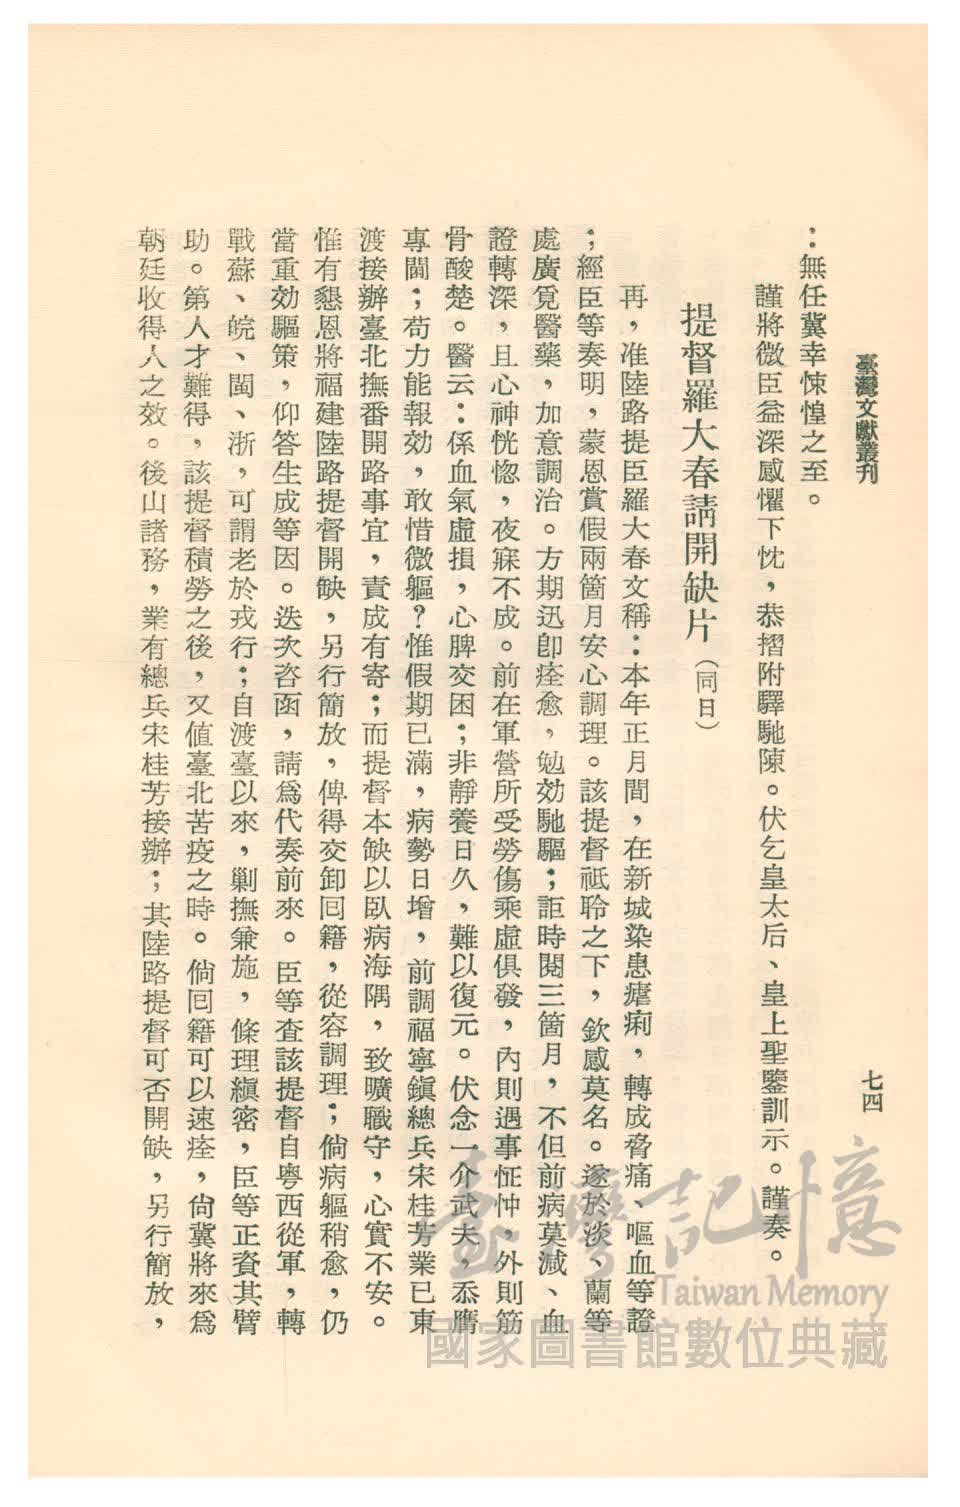 臺灣文獻叢刊
七四
：無任冀幸悚惶之至。
謹將微臣益深感懼下忱，恭摺附驛馳陳。伏乞皇太后、皇上聖鑒訓示。謹奏。
提督羅大春請開缺片（同日）
再，准陸路提臣羅大春文稱：本年正月間，在新城染患瘧痢，轉成脅痛、嘔血等證
；經臣等奏明，蒙恩賞假兩箇月安心調理。該提督祗聆之下，欽感莫名。遂於淡、蘭等
處廣覓醫藥，加意調治。方期迅卽痊愈，勉効馳驅；詎時閱三箇月，不但前病莫減、血
證轉深，且心神恍惚，夜寐不成。前在軍營所受勞傷乘虛俱發，內則遇事怔忡，外則筋
骨酸楚。醫云：係血氣虛損，心脾交困；非靜養日久，難以復元。伏念一介武夫，忝膺
專閫；苟力能報効，敢惜微軀？惟假期已滿，病勢日增，前調福寧鎭總兵宋桂芳業已東
渡接辦臺北撫番開路事宜，責成有寄；而提督本缺以臥病海隅，致曠職守，心實不安。
惟有懇恩將福建陸路提督開缺，另行簡放，俾得交卸回籍，從容調理；倘病軀稍愈，仍
當重効驅策，仰答生成等因。迭次咨函，請爲代奏前來。臣等査該提督自粵西從軍，轉
戰蘇、皖、閩、浙，可謂老於戎行；自渡臺以來，剿撫兼施，條理縝密，臣等正資其臂
助。第人才難得，該提督積勞之後，又值臺北苦疫之時。倘回籍可以速痊，尙冀將來爲
朝廷收得人之效。後山諸務，業有總兵宋桂芳接辦；其陸路提督可否開缺，另行簡放，
臺灣記憶
Taiwan Memory
國家圖書館數位典藏